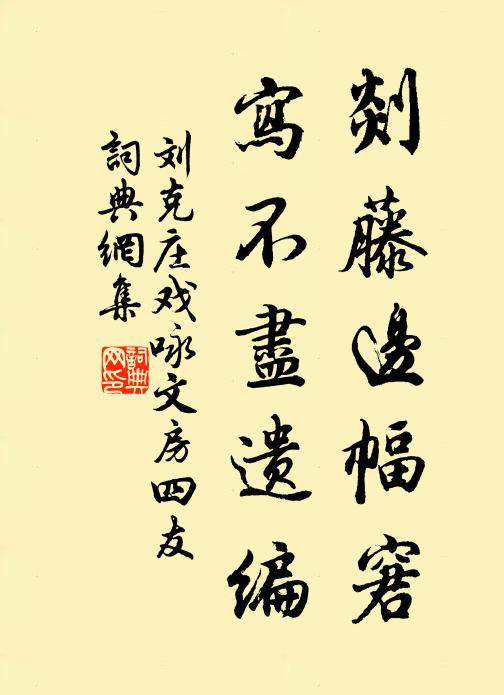 剡藤邊幅窘
寫不盡遺編
刘克庄戏咏文房四友
詞典網集
詞典網印